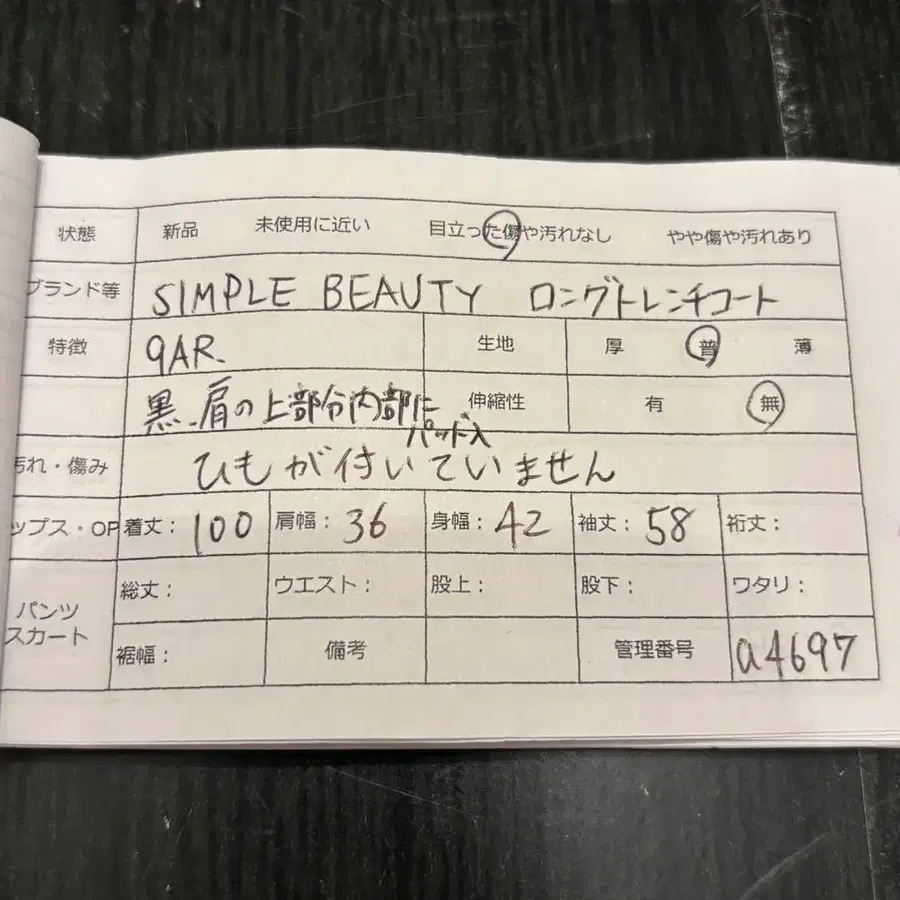 状態 新品 未使用に近い 目立った傷や汚れなし やや傷や汚れあり
ブランド等 SIMPLE BEAUTY ロングトレンチコート
特徴 9AR. 生地 厚 普 薄
黒.肩の上部分内部に 伸縮性 有 無
パッド入
汚れ・傷み ひもが付いていません
ップス・OP 着丈: 100 肩幅: 36 身幅: 42 袖丈: 58 裄丈:
パンツ スカート 総丈: ウエスト: 股上: 股下: ワタリ:
裾幅: 備考 管理番号 a4697